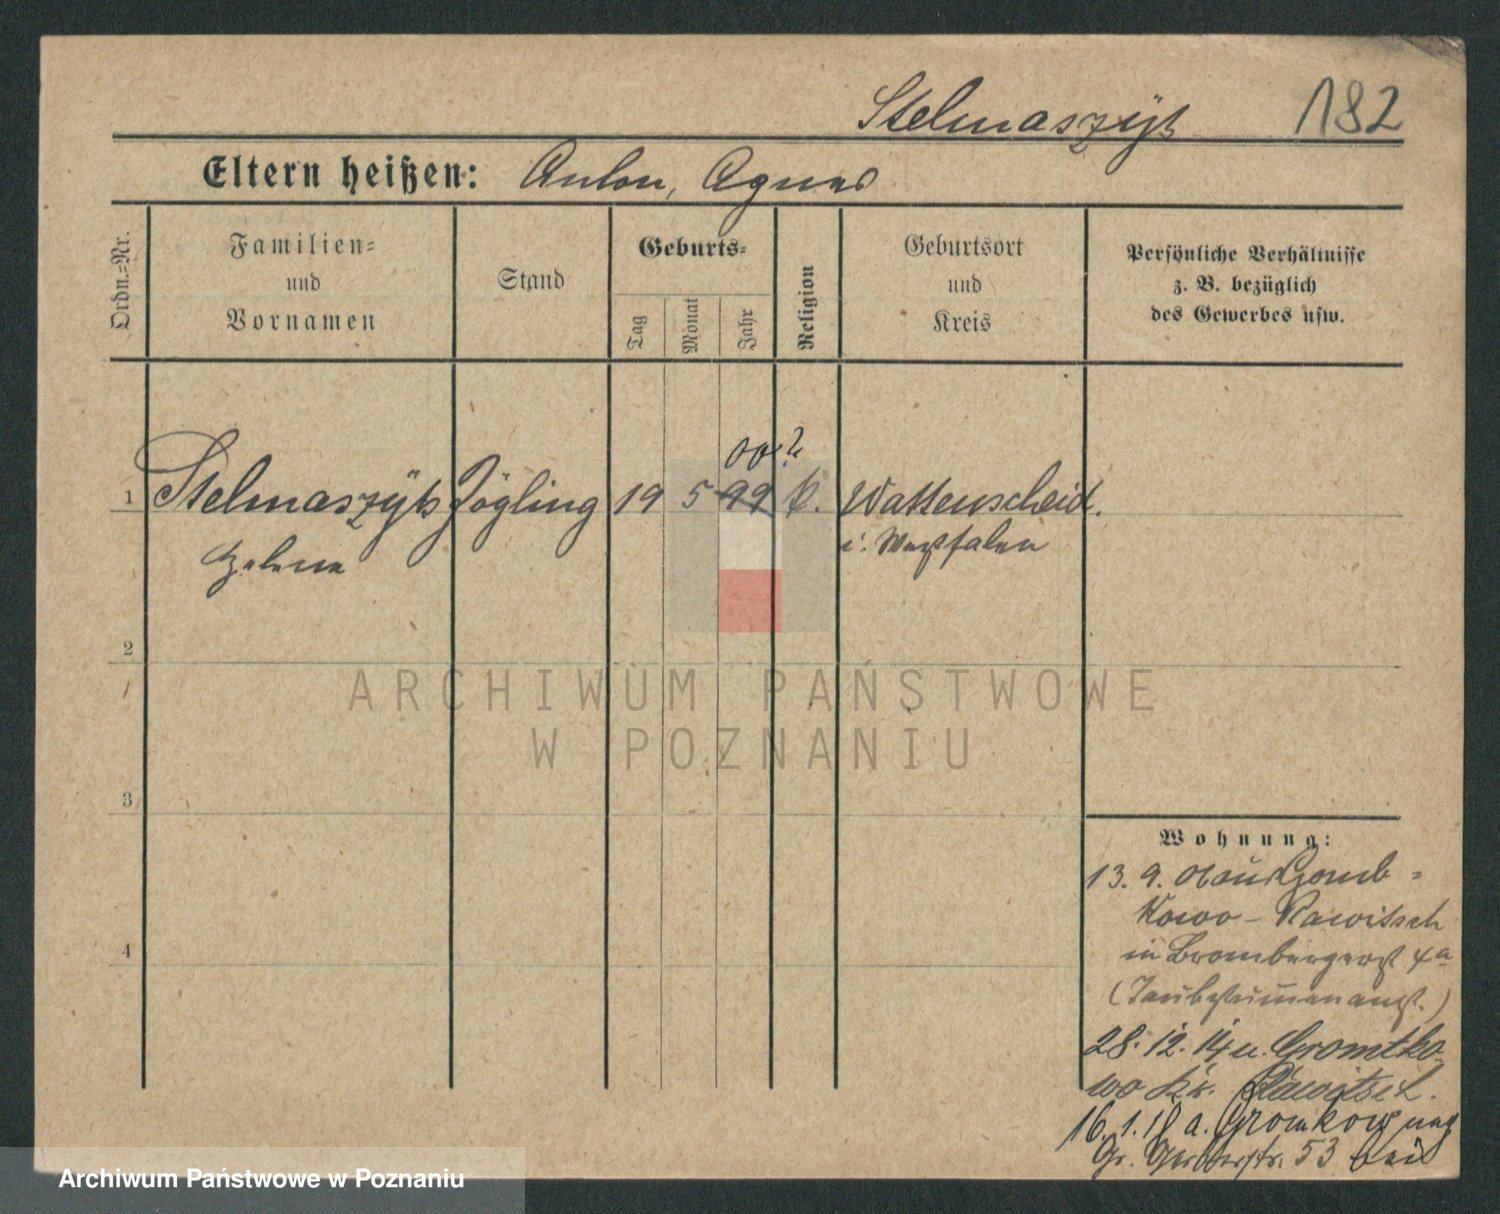 Stelmaszÿk 182
Eltern heißen: Anton, Agnes
Ordn.=Nr.
Familien=
und
Vornamen
Stand
Geburts=
Tag
Monat
Jahr
Religion
Geburtsort
und
Kreis
Persönliche Verhältnisse
z. B. bezüglich
des Gewerbes usw.
00?
1 Stelmaszÿk Zögling 19 5 99 k. Wattenscheid
Helena i. Westfalen
2
3
4
Wohnung:
13. 9.
kowo - Rawitsch
in Brombergerst 4a
(Taubstummenanst.)
28. 12. 14 n. Gromtko-
wo Kr. Rawitsch.
16. 1. a. Gromkowo
Gr. Gerberstr. 53 bei
ARCHIWUM PAŃSTWOWE
W POZNANIU
Archiwum Państwowe w Poznaniu